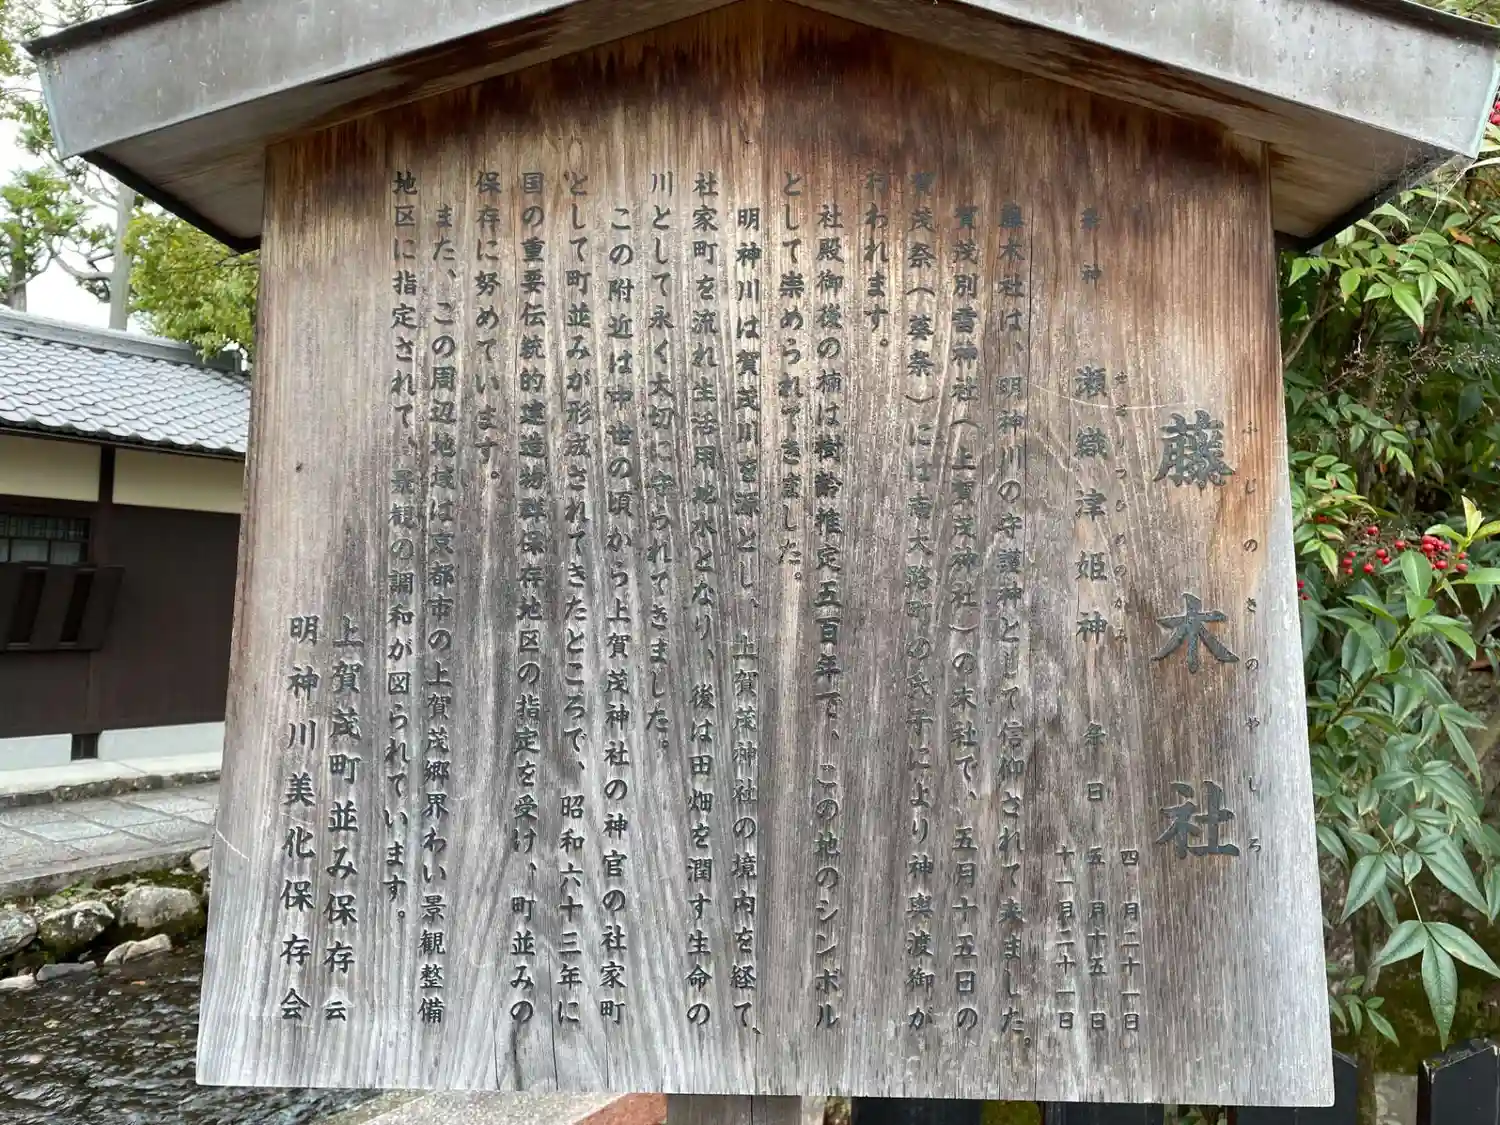 藤木社
ふじのきのやしろ
祭神 瀬織津姫神 祭日 四月二十一日
せおりつひめのかみ
五月十五日
十一月二十一日
藤木社は、明神川の守護神として信仰されて来ました。
賀茂別雷神社(上賀茂神社)の末社で、五月十五日の
賀茂祭(葵祭)には南大路町の氏子により神輿渡御が
行われます。
社殿御後の楠は樹齢推定五百年で、この地のシンボル
として崇められてきました。
明神川は賀茂川を源とし、上賀茂神社の境内を経て、
社家町を流れ生活用地水となり、後は田畑を潤す生命の
川として永く大切に守られてきました。
この附近は中世の頃から上賀茂神社の神官の社家町
として町並みが形成されてきたところで、昭和六十三年に
国の重要伝統的建造物群保存地区の指定を受け、町並みの
保存に努めています。
また、この周辺地域は京都市の上賀茂郷界わい景観整備
地区に指定されて、景観の調和が図られています。
上賀茂町並み保存会
明神川美化保存会